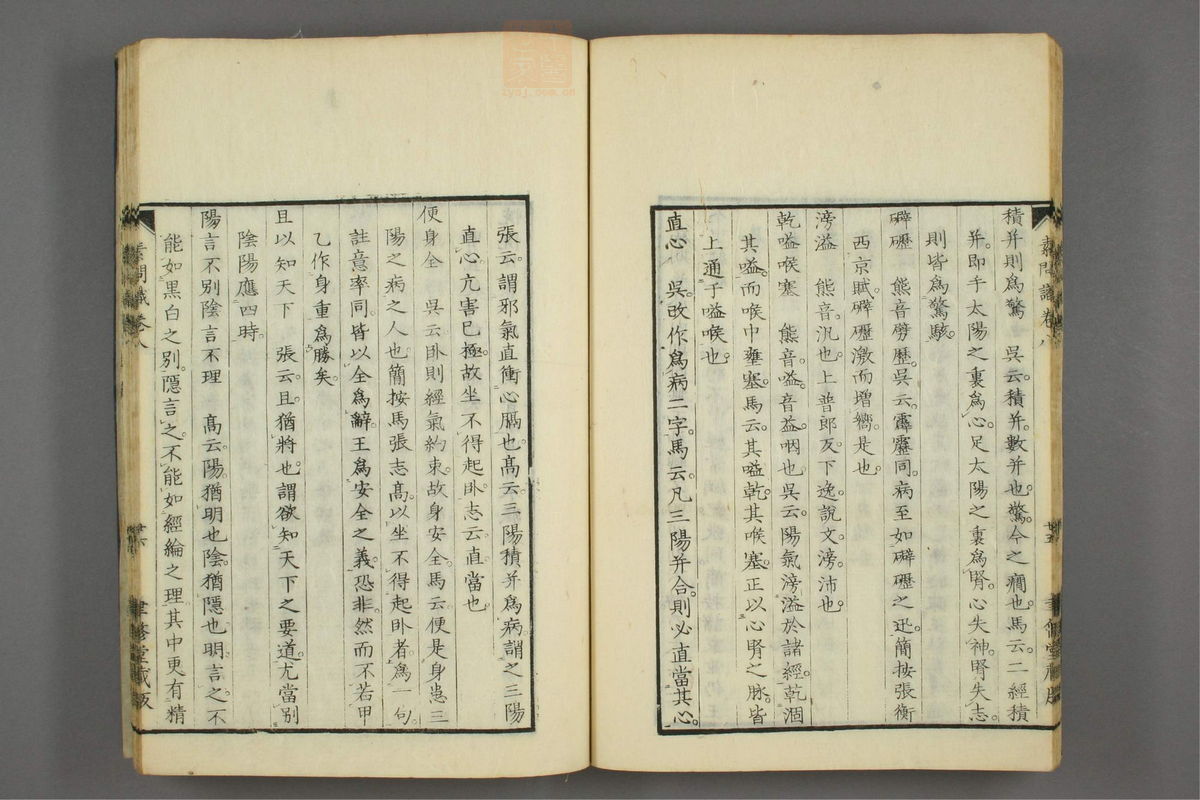 積并則爲驚　吳云積并數并也驚今之癎也馬云二經積
并即手太陽之裏爲心足太陽之裏爲腎心失神腎失志
則皆爲驚駭
礔礰　熊音劈歷吳云霹靂同病至如礔礰之迅簡按張衡
西京賦礔礰激而增嚮是也
滂溢　熊音汎也上普郎反下逸說文滂沛也
乾嗌喉塞　熊音嗌音益咽也吳云陽氣滂溢於諸經乾涸
其嗌而喉中壅塞馬云其嗌乾其喉塞正以心腎之脉皆
上通于嗌喉也
直心　吳改作爲病二字馬云凡三陽并合則必直當其心
素問識卷八
廿五
張云謂邪氣直衝心膈也高云三陽積并爲病謂之三陽
直心亢害已極故坐不得起卧志云直當也
便身全　吳云卧則經氣約束故身安全馬云便是身患三
陽之病之人也簡按馬張志高以坐不得起卧者爲一句
註意率同皆以全爲辭王爲安全之義恐非然而不若甲
乙作身重爲勝矣
且以知天下　張云且猶將也謂欲知天下之要道尤當別
陰陽應四時
陽言不別陰言不理　高云陽猶明也陰猶隱也明言之不
能如黑白之別隱言之不能如經綸之理其中更有精
素問識卷八
廿六
聿修堂藏版